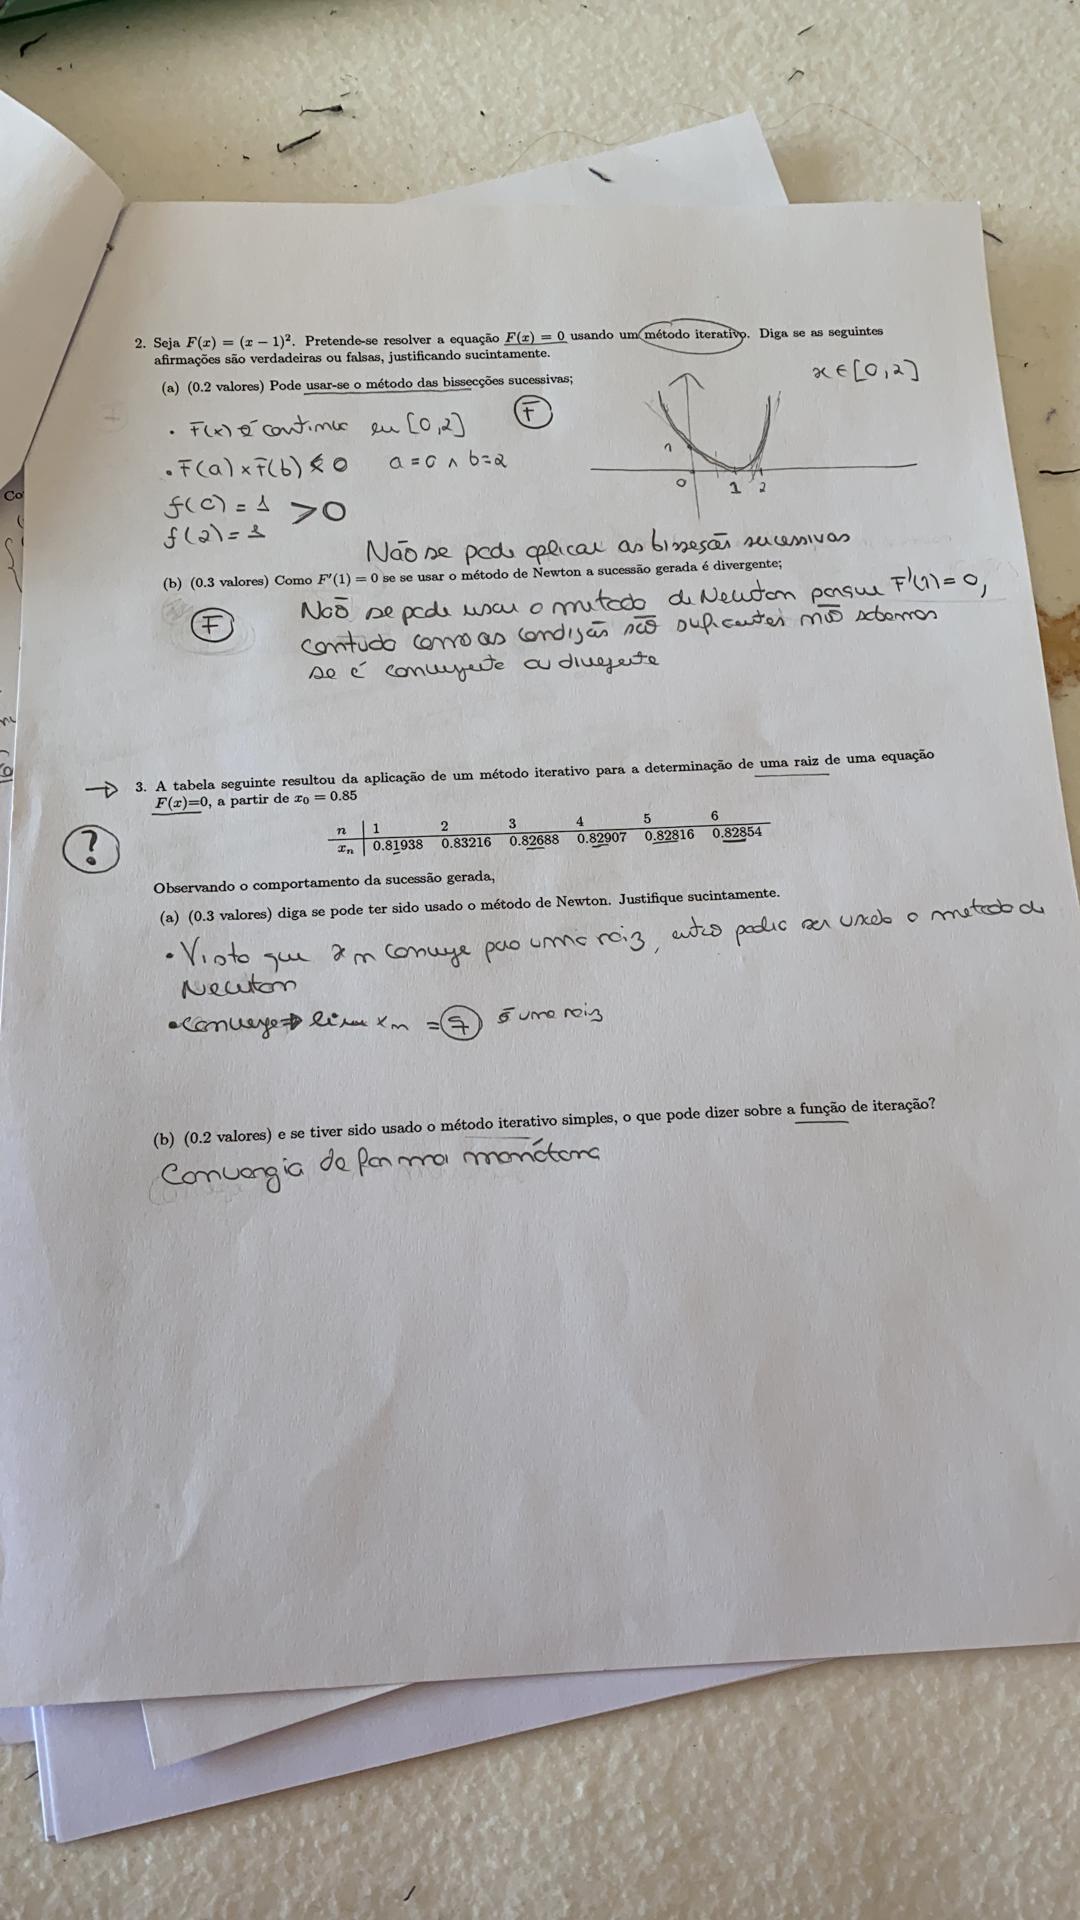 2. Seja F(x) = (x − 1)². Pretende-se resolver a equação F(x) = 0 usando um método iterativo. Diga se as seguintes
afirmações são verdadeiras ou falsas, justificando sucintamente.
x ∈ [0,2]
(a) (0.2 valores) Pode usar-se o método das bissecções sucessivas;
F
• F(x) é continua em [0,2]
• F(a) × F(b) < 0 a = 0 ∧ b = 2
1
0 1 2
f(0) = 1 > 0
f(2) = 1
Não se pode aplicar as bisseções sucessivas
(b) (0.3 valores) Como F'(1) = 0 se se usar o método de Newton a sucessão gerada é divergente;
F
Não se pode usar o metodo de Newton porque F'(1) = 0,
contudo como as condições são suficientes não sabemos
se é convergente ou divergente
→ 3. A tabela seguinte resultou da aplicação de um método iterativo para a determinação de uma raiz de uma equação
F(x)=0, a partir de x₀ = 0.85
?
n 1 2 3 4 5 6
xₙ 0.81938 0.83216 0.82688 0.82907 0.82816 0.82854
Observando o comportamento da sucessão gerada,
(a) (0.3 valores) diga se pode ter sido usado o método de Newton. Justifique sucintamente.
• Visto que xn converge para uma raiz, então podia ser usado o metodo de
Newton
• converge ⇒ lim xn = é uma raiz
(b) (0.2 valores) e se tiver sido usado o método iterativo simples, o que pode dizer sobre a função de iteração?
Convergia de forma monótona